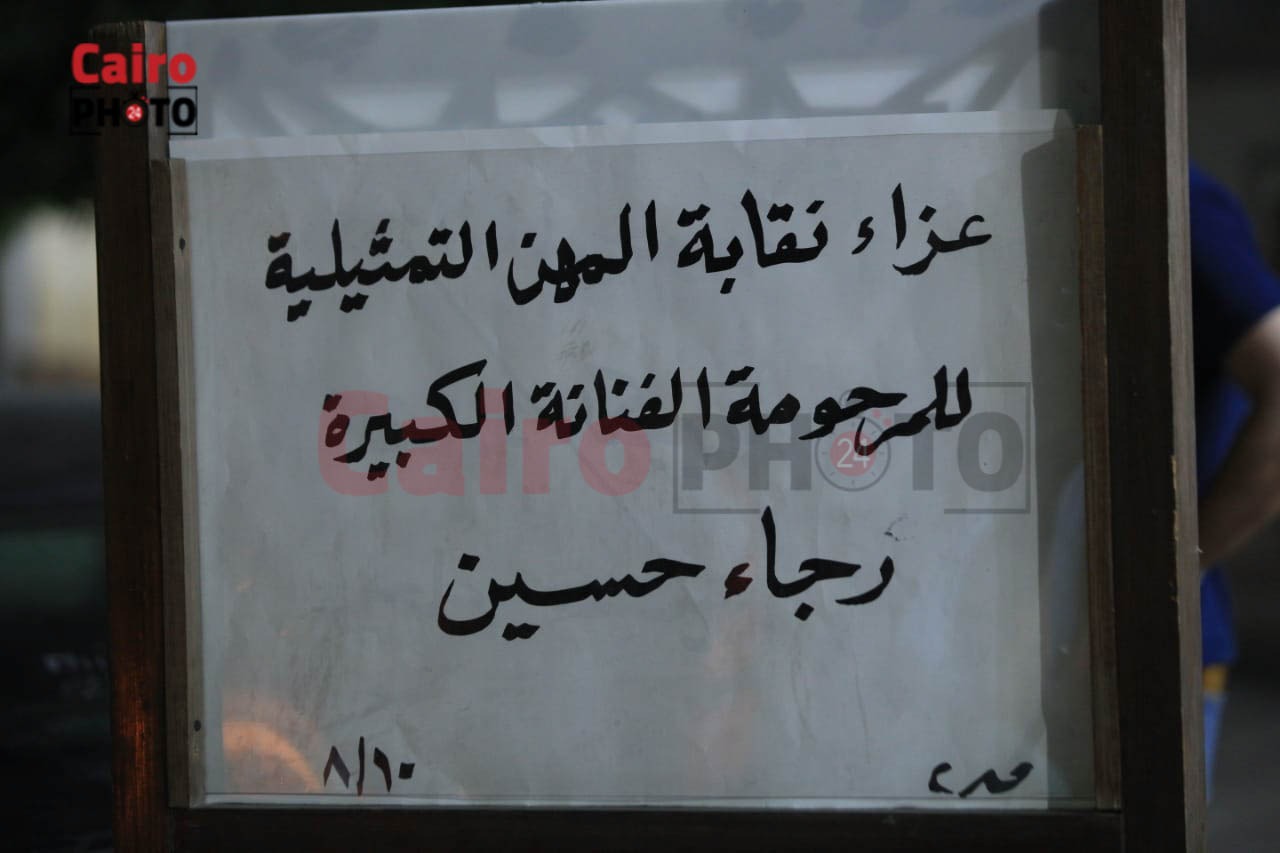 Cairo
PHOTO
24
عزاء نقابة المهن التمثيلية
للمرحومة الفنانة الكبيرة
Cairo PHOTO
24
رجاء حسين
٨/١٠